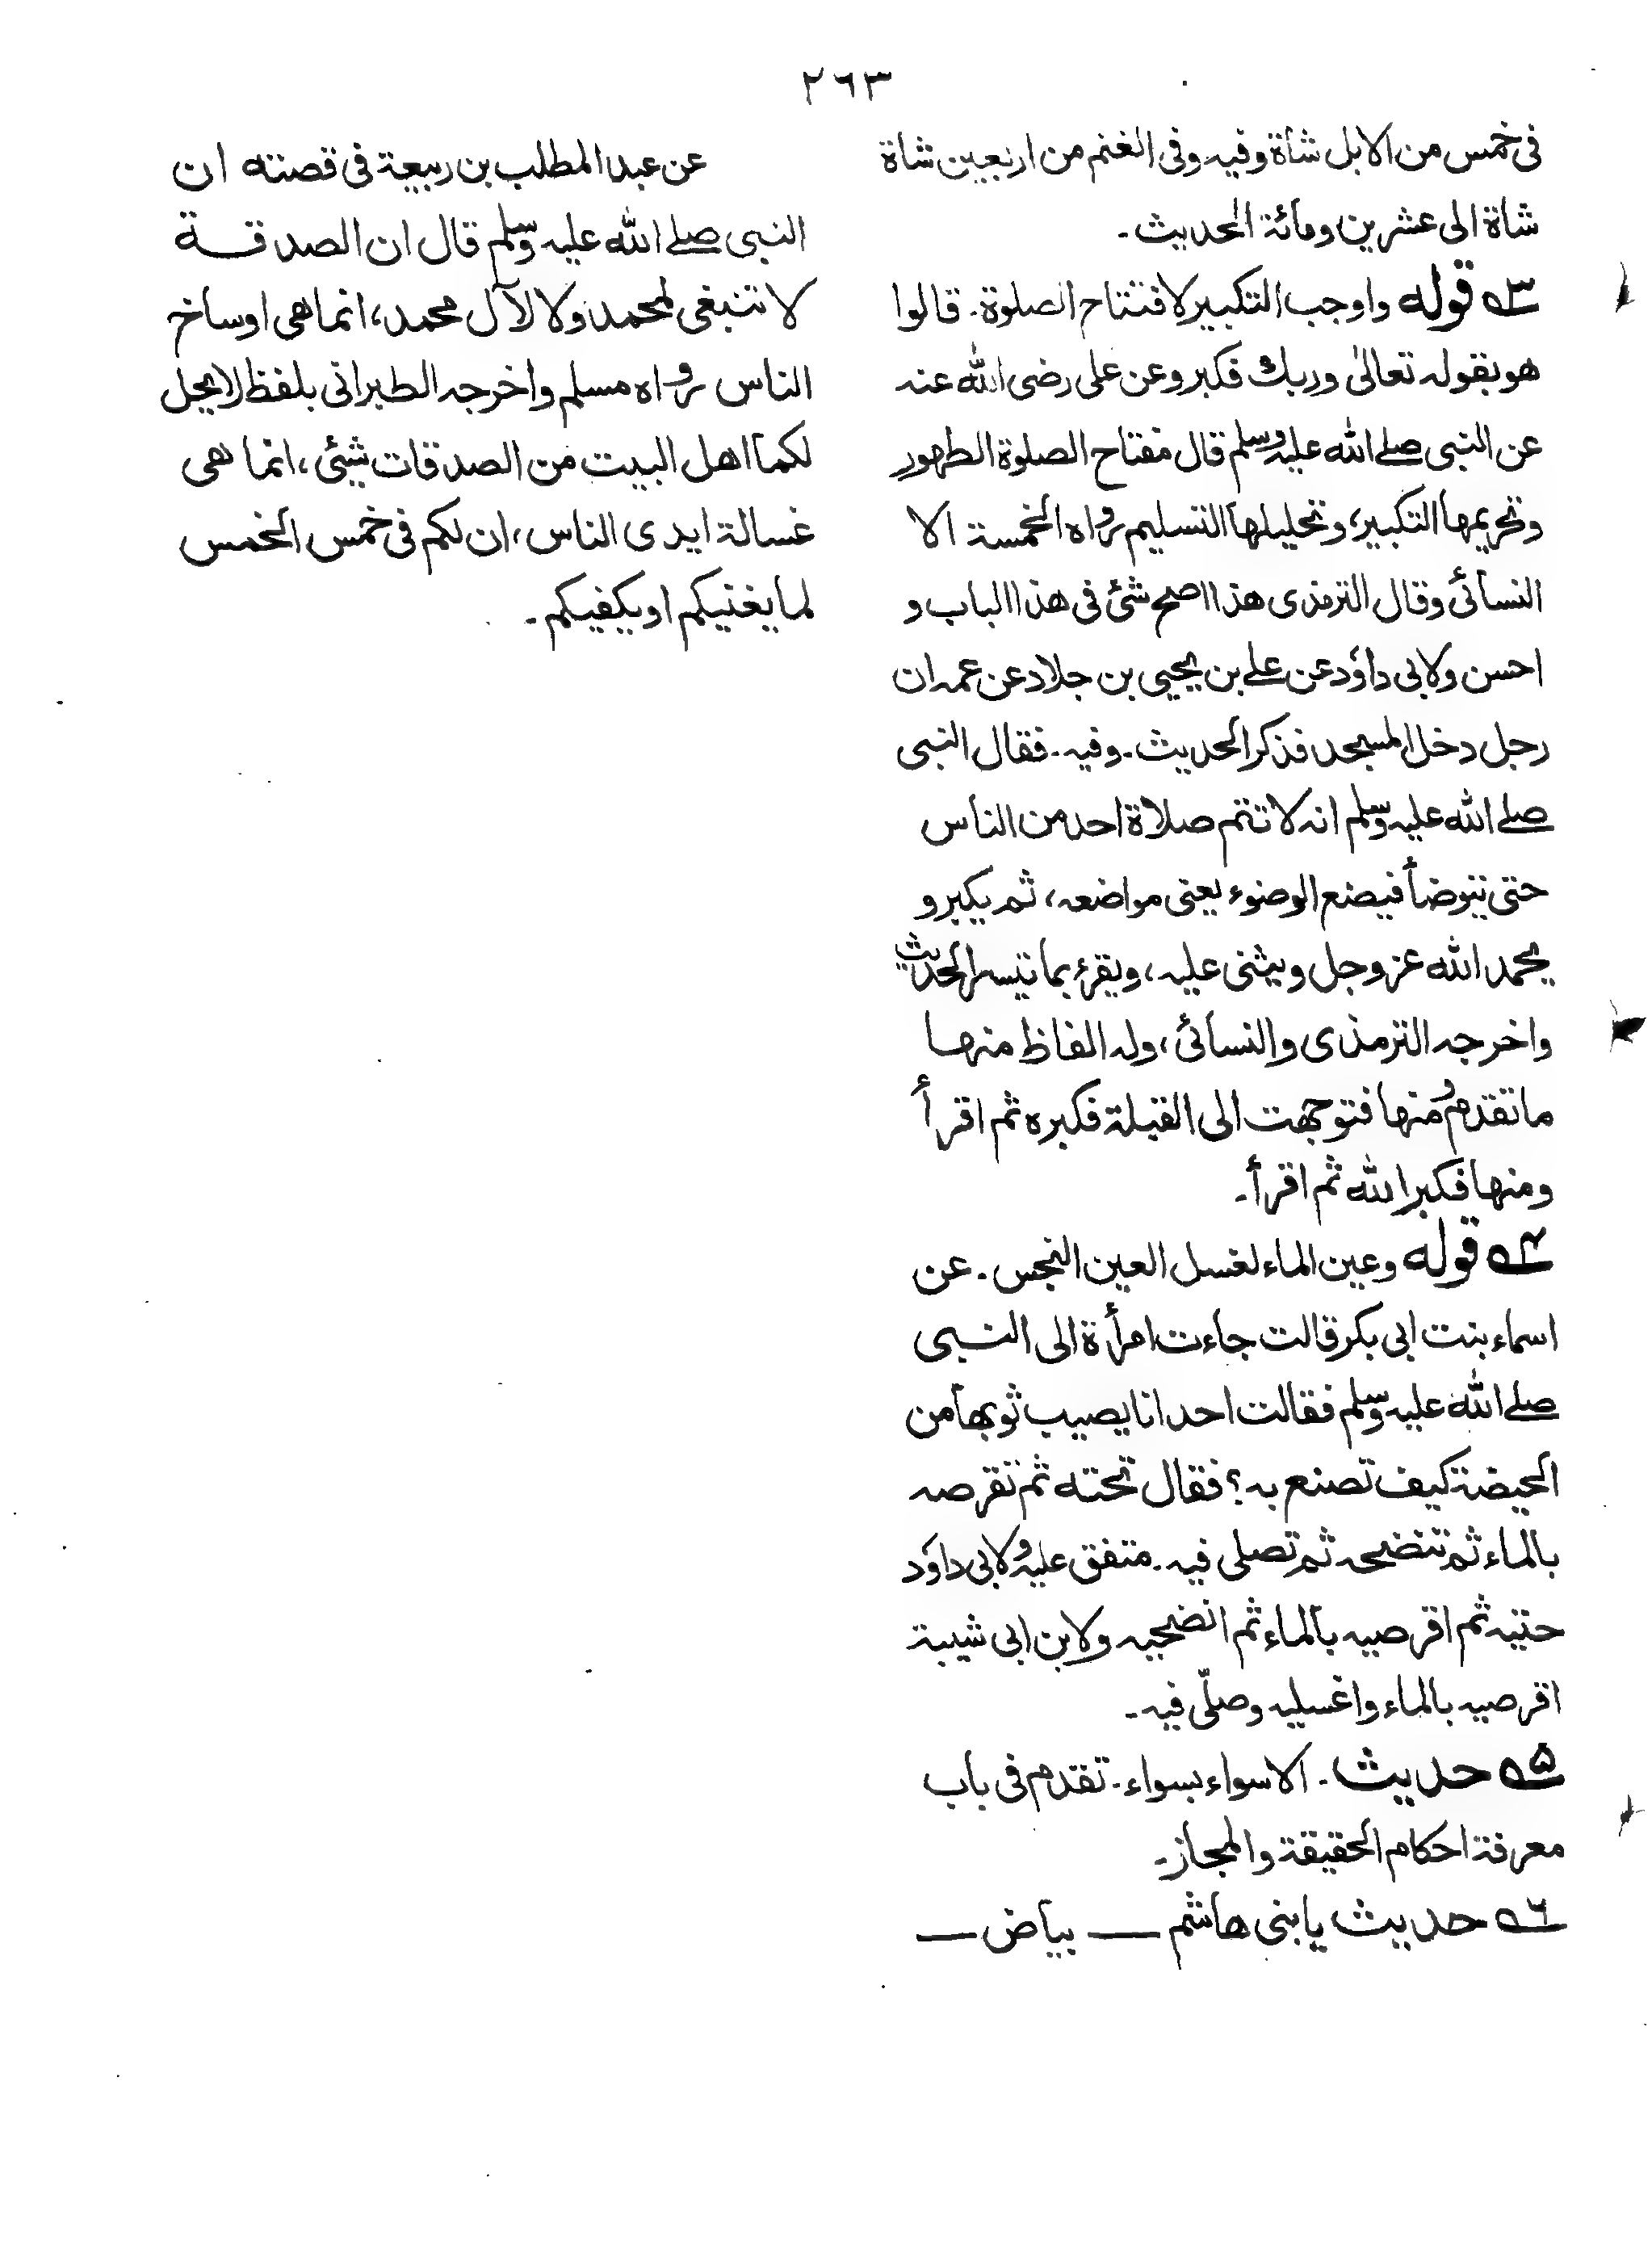 ٢٦٣
فی خمس من الابل شاة وفیہ وفی الغنم من اربعین شاة
شاة الی عشرین ومائة الحدیث۔
٣؎ قولہ واوجب التکبیر لافتتاح الصلوة۔ قالوا
ھو بقولہ تعالیٰ وربك فکبر وعن علی رضی اللہ عنہ
عن النبی صلے اللہ علیہ وسلم قال مفتاح الصلوة الطھور
وتحریمھا التکبیر، وتحلیلھا التسلیم رواہ الخمسة الا
النسائی وقال الترمذی ھذا اصح شئ فی ھذا الباب و
احسن ولابی داؤد عن علے بن یحیی بن جلاد عن عمہ ان
رجل دخل المسجد فذکر الحدیث۔ وفیہ۔ فقال النبی
صلے اللہ علیہ وسلم انہ لا تتم صلاة احد من الناس
حتی یتوضأ فیضع الوضوء یعنی مواضعہ، ثم یکبر و
یحمد اللہ عزوجل ویثنی علیہ، ویقرء بما تیسر الحدیث
واخرجہ الترمذی والنسائی، ولہ الفاظ منھا
ما تقدم ومنھا فتوجھت الی القبلة فکبرہ ثم اقرأ
ومنھا فکبر اللہ ثم اقرأ۔
٤؎ قولہ وعین الماء لغسل العین النجس۔ عن
اسماء بنت ابی بکر قالت جاءت امرأة الی النبی
صلے اللہ علیہ وسلم فقالت احدانا یصیب ثوبھا من
الحیضة کیف تصنع بہ؟ فقال تحتہ ثم تقرصہ
بالماء ثم تنضحہ ثم تصلی فیہ۔ متفق علیہ ولابی داؤد
حتیہ ثم اقرصیہ بالماء ثم انضحیہ ولابن ابی شیبة
اقرصیہ بالماء واغسلیہ وصلّی فیہ۔
۵؎ حدیث۔ الا سواء بسواء۔ تقدم فی باب
معرفة احکام الحقیقة والمجاز۔
٦؎ حدیث یا بنی ھاشم — بیاض —
عن عبدالمطلب بن ربیعة فی قصتہ ان
النبی صلے اللہ علیہ وسلم قال ان الصدقة
لا تنبغی لمحمد ولا لآل محمد، انما ھی اوساخ
الناس رواہ مسلم واخرجہ الطبرانی بلفظ لا یحل
لکما اھل البیت من الصدقات شیئی، انما ھی
غسالة ایدی الناس، ان لکم فی خمس الخمس
لما یغنیکم او یکفیکم۔